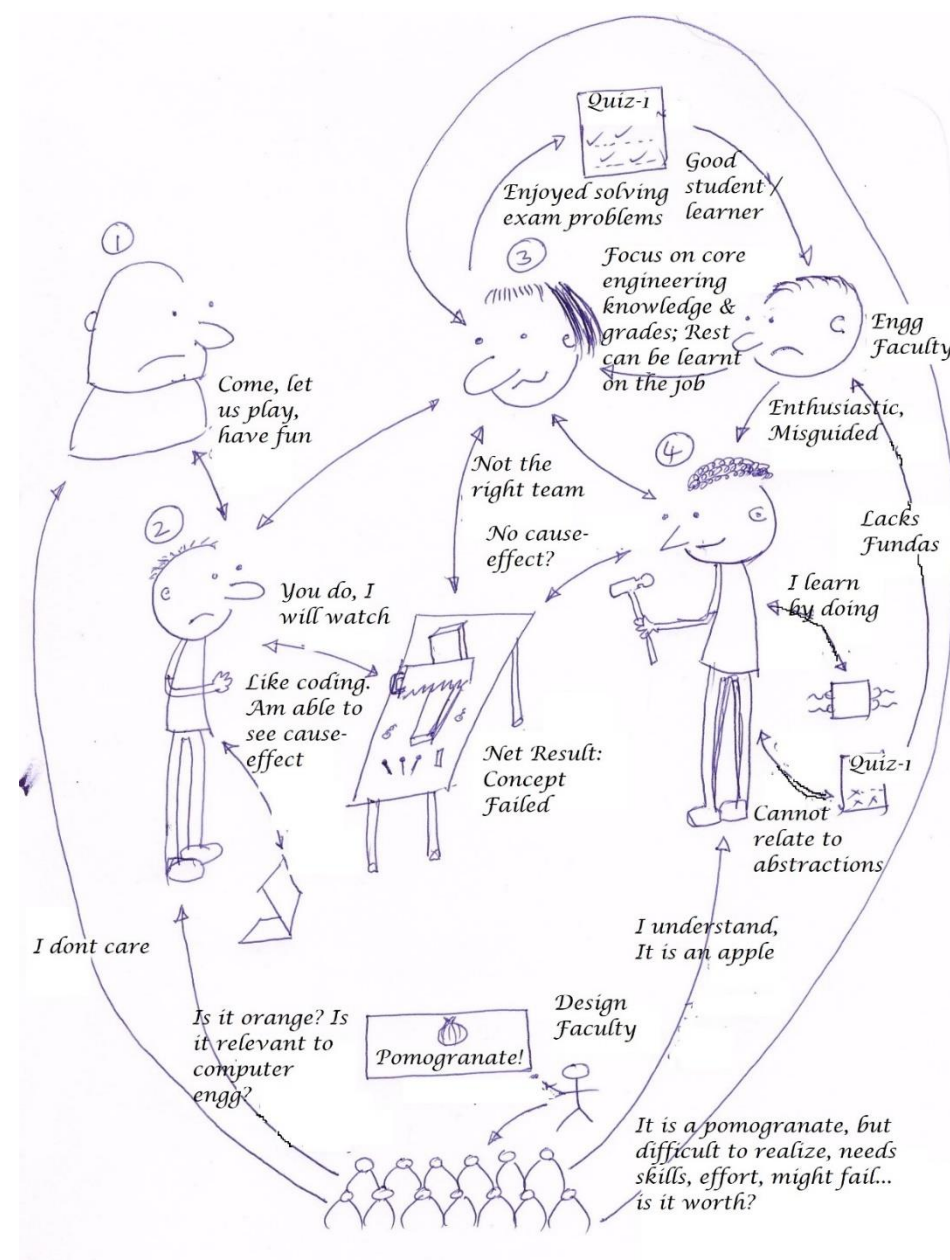 Quiz-1
Enjoyed solving
exam problems
Good
student /
learner
1
3
Focus on core
engineering
knowledge &
grades; Rest
can be learnt
on the job
Engg
Faculty
Come, let
us play,
have fun
Enthusiastic,
Misguided
4
Not the
right team
2
No cause-
effect?
Lacks
Fundas
You do, I
will watch
I learn
by doing
Like coding.
Am able to
see cause-
effect
Net Result:
Concept
Failed
Quiz-1
Cannot
relate to
abstractions
I dont care
I understand,
It is an apple
Is it orange? Is
it relevant to
computer
engg?
Pomogranate!
Design
Faculty
It is a pomogranate, but
difficult to realize, needs
skills, effort, might fail...
is it worth?